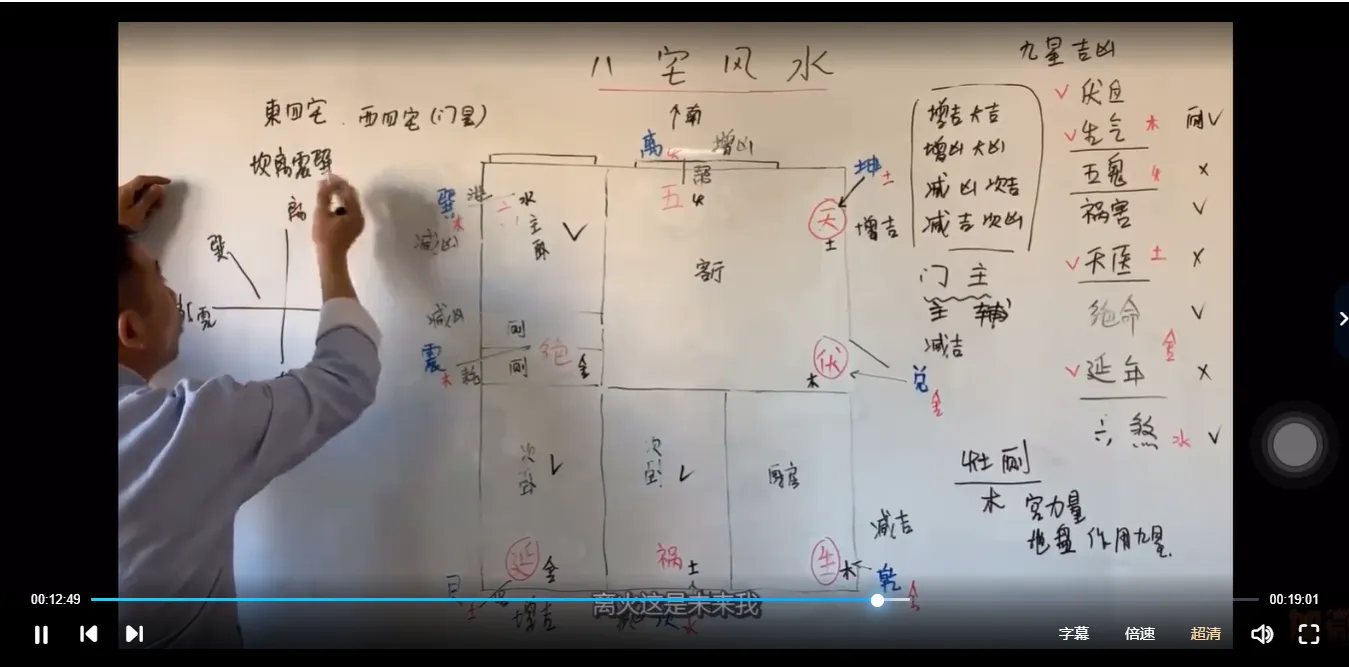 八宅风水
九星吉凶
東四宅.西四宅(门星)
坎離震巽
↑南
離 火 增凶
帮
五 火
巽 泄
木
减凶
六 水
主
卧
✓
客厅
坤 土
天
土
增吉
增吉大吉
增凶大凶
减凶次吉
减吉次凶
门 主
主 辅
减吉
✓伏位
✓生气 木 厕✓
五鬼 火 ×
祸害 ✓
✓天医 土 ×
绝命 金 ✓
✓延年 ×
六煞 水 ✓
巽
震
减凶
震 木 耗
厕
厕 绝 金
伏
木
兑 金
次
卧 ✓
次
卧 ✓
厨房
延 金
祸 土
生 木
减吉
乾 金
艮 土
增吉
水
灶厕
木 宫力量
地盘 作用九星.
离火这是未来我
00:12:49
00:19:01
字幕
倍速
超清